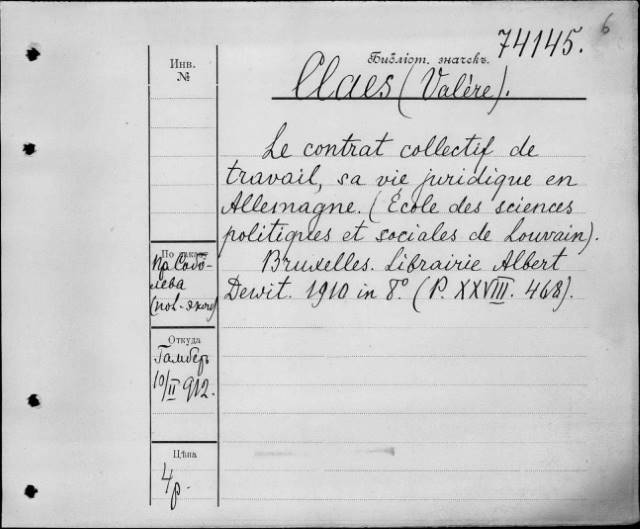 6
74145.
Инв.
№
Библіот. значекъ.
Claes (Valère).
Le contrat collectif de
travail, sa vie juridique en
Allemagne. (École des sciences
politiques et sociales de Louvain).
Bruxelles. Librairie Albert
Dewit. 1910 in 8° (P. XXVIII. 468).
По заказу
Соболева
Откуда
Гамбер
10/II 912.
Цѣна
4 р.